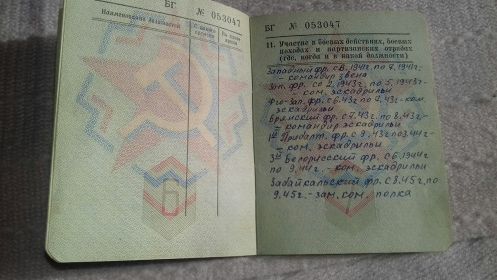 БГ № 053047
Наименование должностей
С какого времени
По какое время
6
БГ № 053047
11. Участие в боевых действиях, боевых
походах и партизанских отрядах
(где, когда и в какой должности)
Западный фр. с 8.1941г. по 9.1941г-
- командир звена
Зап. фр. со 2.1943г. по 5.1943г-
- ком. эскадрильи
Юго-Зап. фр с 6.43г по 7.43г-ком.
эскадрильи
Брянский фр. с 7.43г. по 8.43г-
- командир эскадрильи
1й Прибалт. фр. с 9.43г по 3.44г-
- ком. эскадрильи
3й Белорусский фр. с 6.1944г
по 9.44г.- ком. эскадрильи
Забайкальский фр. с 8.45г. по
9.45г.- зам. ком. полка